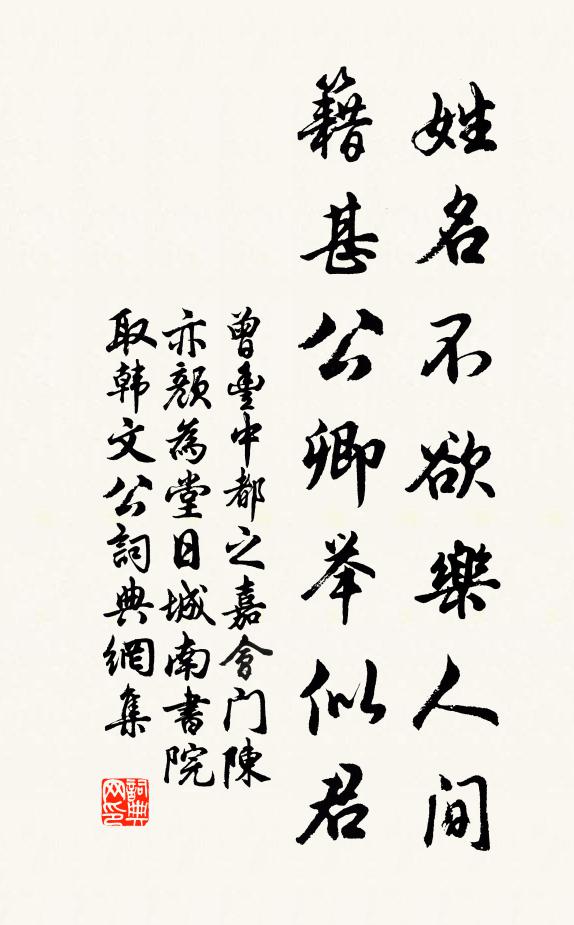 姓名不欲樂人間
籍甚公卿举似君
曾豊中都之嘉會门陳
亦颜為堂日城南書院
取韩文公詞典網集
詞典网印